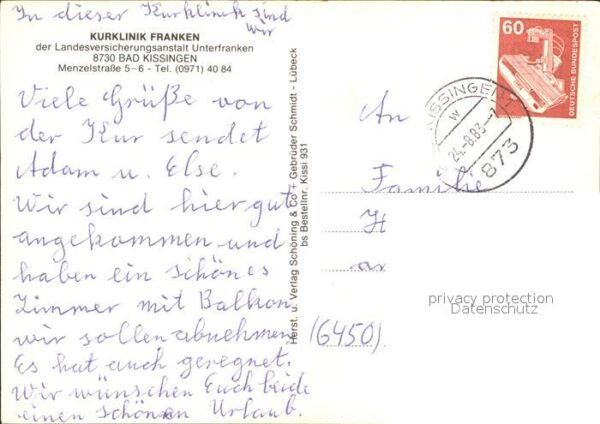 In dieser Kurklinik sind
wir
KURKLINIK FRANKEN
der Landesversicherungsanstalt Unterfranken
8730 BAD KISSINGEN
Menzelstraße 5–6 - Tel. (0971) 40 84
Viele Grüße von
der Kur sendet
Adam u. Else.
Wir sind hier gut
angekommen und
haben ein schönes
Zimmer mit Balkon
wir sollen abnehmen
Es hat auch geregnet.
Wir wünschen Euch beide
einen schönen Urlaub.
Herst. u. Verlag Schöning & Co + Gebrüder Schmidt - Lübeck
bs Bestellnr. Kissi 931
60
DEUTSCHE BUNDESPOST
KISSINGEN 1
w
24.-8.83.-1
873
An
Familie
H
(6450)
privacy protection
Datenschutz